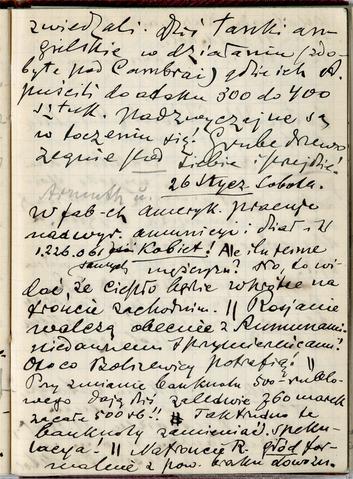 zwiedzali. Dziś tanki an
gielskie w działaniu (zdo-
byte pod Cambrai) gdzie ich
puścili do ataku 300 do 400
sztuk. Nadzwyczajne są
w toczeniu się! Grube drzewo
zegnie pod siebie i przejdzie!
26 Stycz. Sobota.
W fab-ch ameryk. pracuje
nad wyr. amunicyi i dział
1.226.061 Kobiet! Ale ilu
samych mężczyzn? No, to wi-
dać, że ciepło będzie wkrótce na
froncie zachodnim. || Rosjanie
walczą obecnie z Rumunami
niedawnemi sprzymierzeńcami!
Oto co Bolszewicy potrafią! ||
Przy zmianie banknotu 500-rublo-
wego dają dziś zaledwie 360 marek
za całe 500 rb!! Tak trudno te
banknoty zamieniać, speku-
lacya! || Na froncie R. głód for-
malnie z pow. braku dowozu.